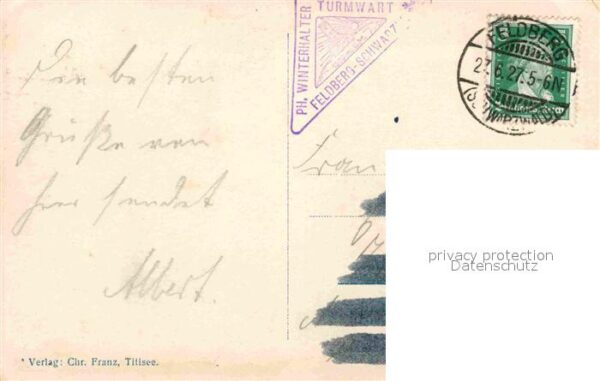 Die besten
Grüße von
hier sendet
Albert.
* Verlag: Chr. Franz, Titisee.
PH. WINTERHALTER
TURMWART
FELDBERG-SCHWARZW.
FELDBERG
27.6.27. 5-6N.
(SCHWARZWALD)
Frau
privacy protection
Datenschutz